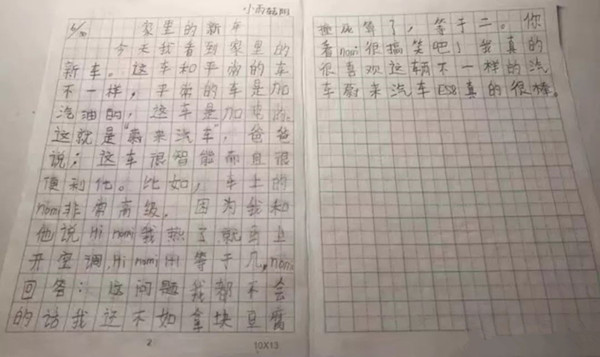 小雨转阴
家里的新车
今天我看到家里的
新车。这车和平常的车
不一样，平常的车是加
汽油的，这车是加电的。
这就是“蔚来汽车”，爸爸
说：这车很智能而且很
便利他。比如，车上的
nomi非常高级，因为我和
他说Hi nomi我热了就马上
开空调，Hi nomi 1+1等于几，nomi
回答：这问题我都不会
的话我还不如拿块豆腐
2
10X13
撞死算了，等于二。你
看nomi很搞笑吧！我真的
很喜观这辆不一样的汽
车蔚来汽车ES8真的很棒。